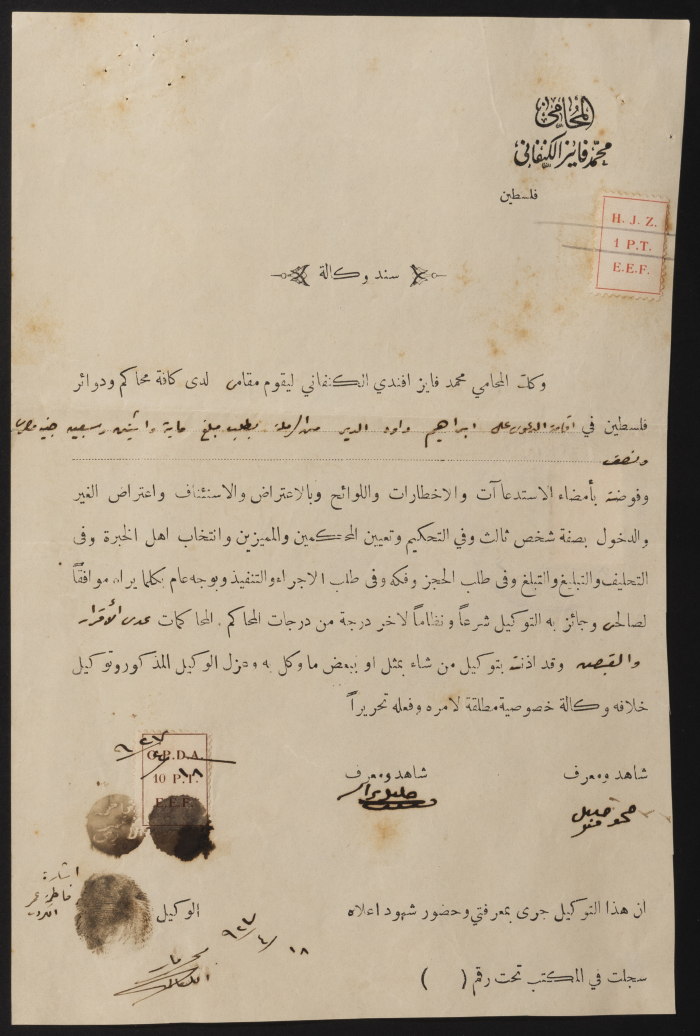 المحامي
محمد فايز الكنفاني
فلسطين
H. J. Z.
1 P.T.
E.E.F.
سند وكالة
وكلت المحامي محمد فايز افندي الكنفاني ليقوم مقامي لدى كافة محاكم ودوائر
فلسطين في اقامة الدعوى على ابراهيم داود الدير من الرملة بطلب مبلغ ماية واثنين وسبعين جنيه مصري
ونصف
وفوضته بأمضاء الاستدعاآت والاخطارات واللوائح وبالاعتراض والاستئناف واعتراض الغير
والدخول بصفة شخص ثالث وفي التحكيم وتعيين المحكمين والمميزين وانتخاب اهل الخبرة وفى
التحليف والتبليغ والتبلغ وفى طلب الحجز وفكه وفى طلب الاجراء والتنفيذ وبوجه عام بكلما يراه موافقاً
لصالحي وجائز به التوكيل شرعاً ونظاماً لاخر درجة من درجات المحاكم . المحاكمات عدى الأقرار
والقبض وقد اذنته بتوكيل من شاء بمثل او ببعض ما وكل به وعزل الوكيل المذكور وتوكيل
خلافه وكالة خصوصية مطلقة لامره وفعله تحريراً
١٨/٤/٩٢٧
O.P.D.A.
10 P.T.
E.E.F.
شاهد ومعرف
شاهد ومعرف
خليل
اشارة
فاطمة
ان هذا التوكيل جرى بمعرفتي وحضور شهود اعلاه
الوكيل
١٨/٤/٩٢٧
سجلت في المكتب تحت رقم ( )